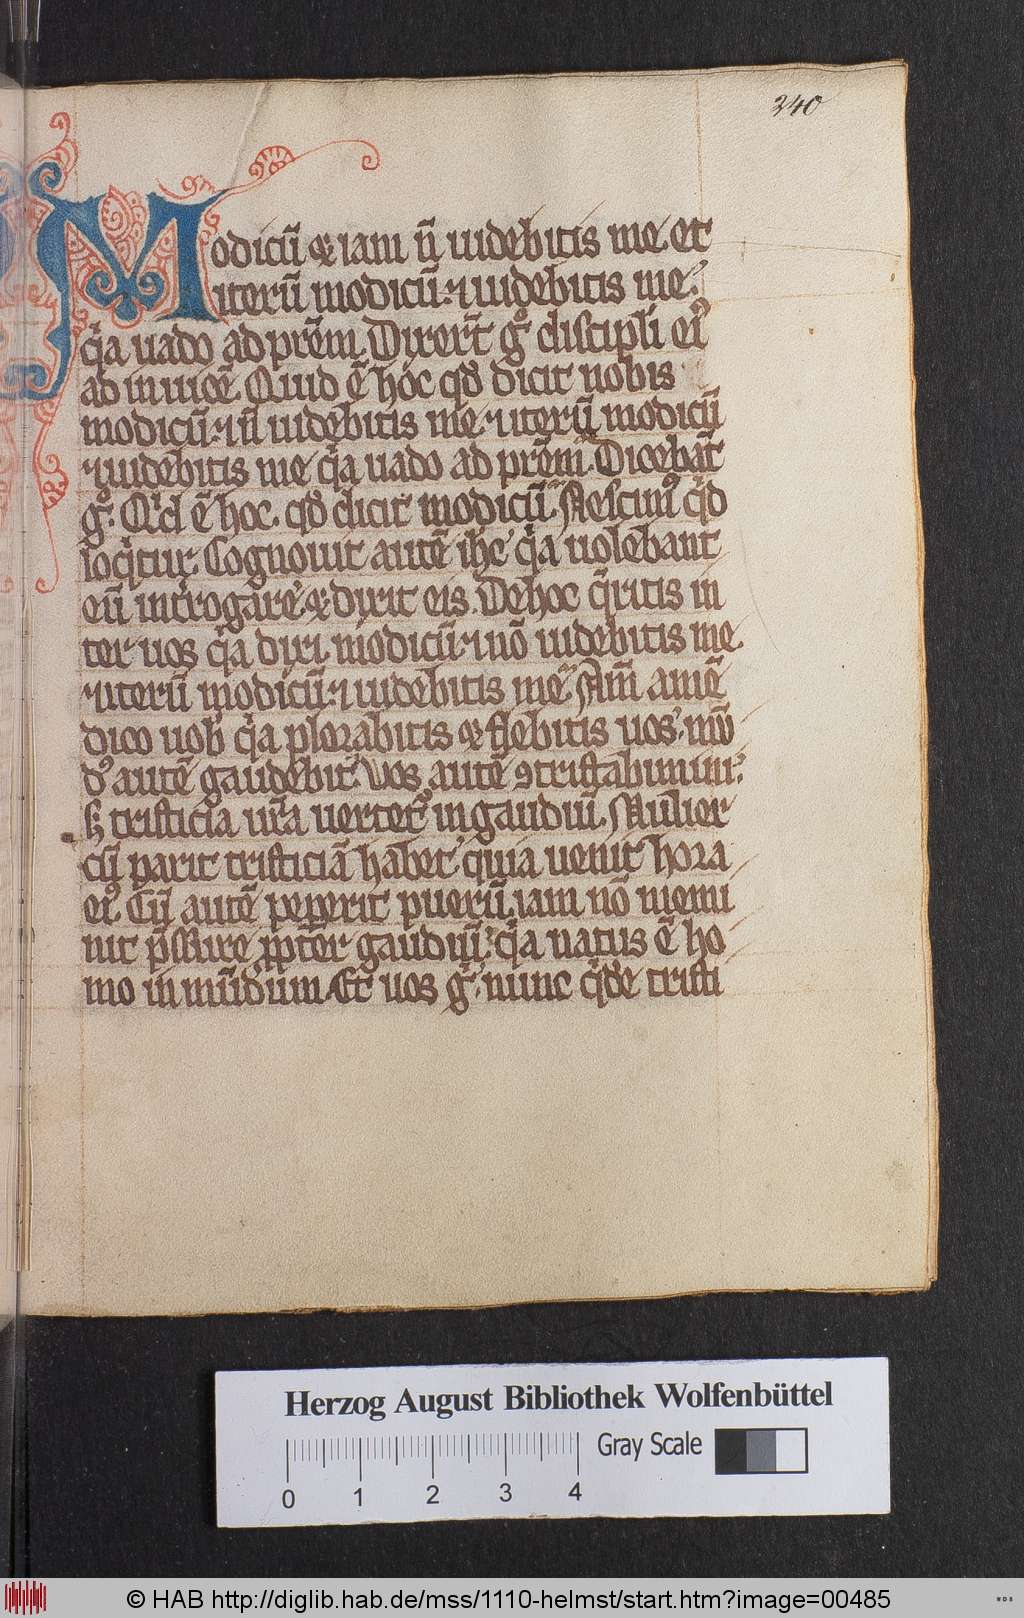 240
Modicū ⁊ iam ñ uidebitis me et
iterū modicū ⁊ uidebitis me
q̇a uado ad prēm. Dixer̄t gͦ discipli eiꝰ
ad inuicē. Quid ē hoc qđ dicit nobis
modicū ⁊ ñ uidebitis me ⁊ iterū modicū
⁊ uidebitis me q̇a uado ad prēm. Dicebāt
gͦ. Qͥd ē hoc. qđ dicit modicū. Nescimꝰ qͥd
loqͥtur. Cognouit autē ihc q̇a uolebant
eū int̾rogare ⁊ dixit eis. De hoc q̄ritis in
ter uos q̇a dixi modicū ⁊ nō uidebitis me
⁊ iterū modicū ⁊ uidebitis me. Am̄ amē
dico uob̾ q̇a plorabitis ⁊ flebitis uos. mū
dꝰ autē gaudebit. Vos autē ꝯtristabimini.
ꝫ tristicia ur̄a uertet᷑ in gaudiū. Mulier
cū parit tristiciā habet quia uenit hora
eiꝰ. Cū autē pepeerit puerū. iam nō memi
nit p̄ssure ꝓpt̄er gaudiū. q̇a natus ē ho
mo in mūdum. Et uos gͦ nunc qͥde tristi
Herzog August Bibliothek Wolfenbüttel
Gray Scale
0 1 2 3 4
© HAB http://diglib.hab.de/mss/1110-helmst/start.htm?image=00485